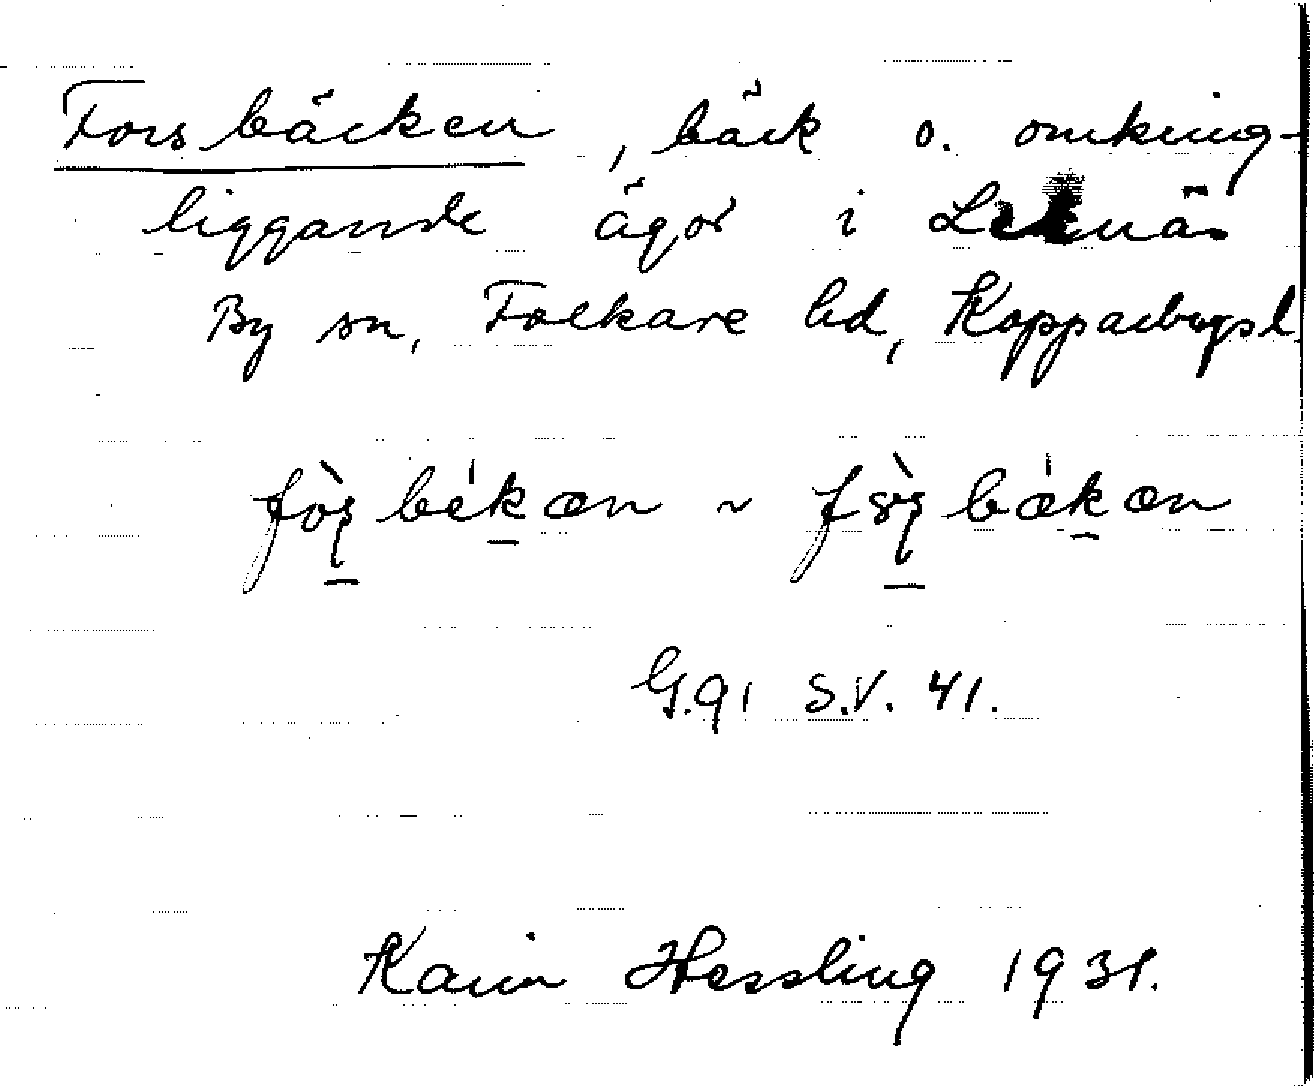 Forsbäcken, bäck o. omkring-
liggande ägor i Leknäs
By sn, Folkare hd, Kopparbergs l.
fo̖ʂbékæn ~ fʂbækæn
G.91 S.V. 41.
Karin Hessling 1931.